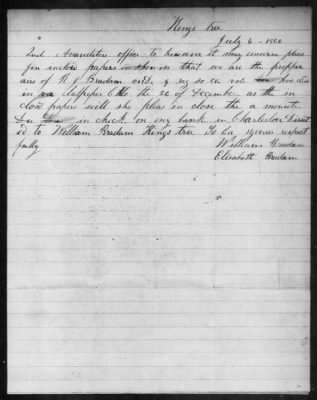 Kings tree
July 6 1862
2nd Auauditor office to howeve it may concern pleas
fin inclose papers in shon us that we are the propper
airs of R J Bradam orild, 4 reg so ca vols hoe died
in va Culpeper C H the 26 of december as the in
close papers will she pleas in close the a mount
due in check on eny bank in Charleston direct
ed to William Bradam Kings tree So Ca yours respect
fully
William Bradam
Elizabeth Bradam